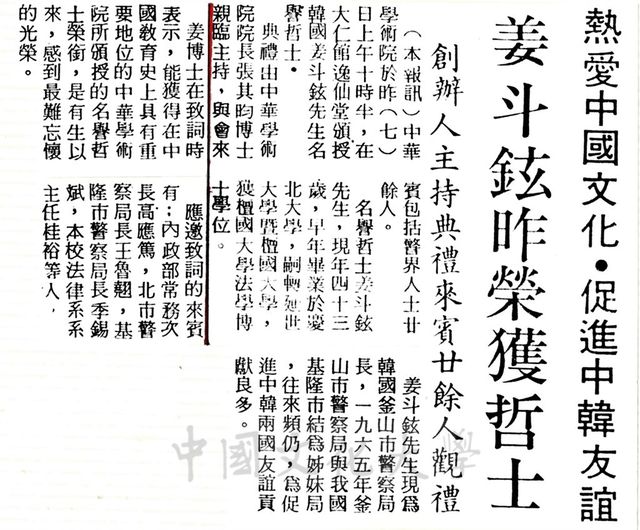 熱愛中國文化•促進中韓友誼
姜斗鉉昨榮獲哲士
創辦人主持典禮來賓廿餘人觀禮
（本報訊）中華
學術院於昨（七）
日上午十時半，在
大仁館逸仙堂頒授
韓國姜斗鉉先生名
譽哲士。
典禮由中華學術
院院長張其昀博士
親臨主持，與會來
賓包括警界人士廿
餘人。
名譽哲士姜斗鉉
先生，現年四十三
歲，早年畢業於慶
北大學，嗣轉延世
大學暨檀國大學，
獲檀國大學法學博
士學位。
姜斗鉉先生現爲
韓國釜山市警察局
長，一九六五年釜
山市警察局與我國
基隆市結爲姊妹局
，往來頻仍，爲促
進中韓兩國友誼貢
獻良多。
姜博士在致詞時
表示，能獲得在中
國教育史上具有重
要地位的中華學術
院所頒授的名譽哲
士榮銜，是有生以
來，感到最難忘懷
的光榮。
應邀致詞的來賓
有：內政部常務次
長高應篤，北市警
察局長王魯翹，基
隆市警察局長季錫
斌，本校法律系系
主任桂裕等人，
中國文化大學